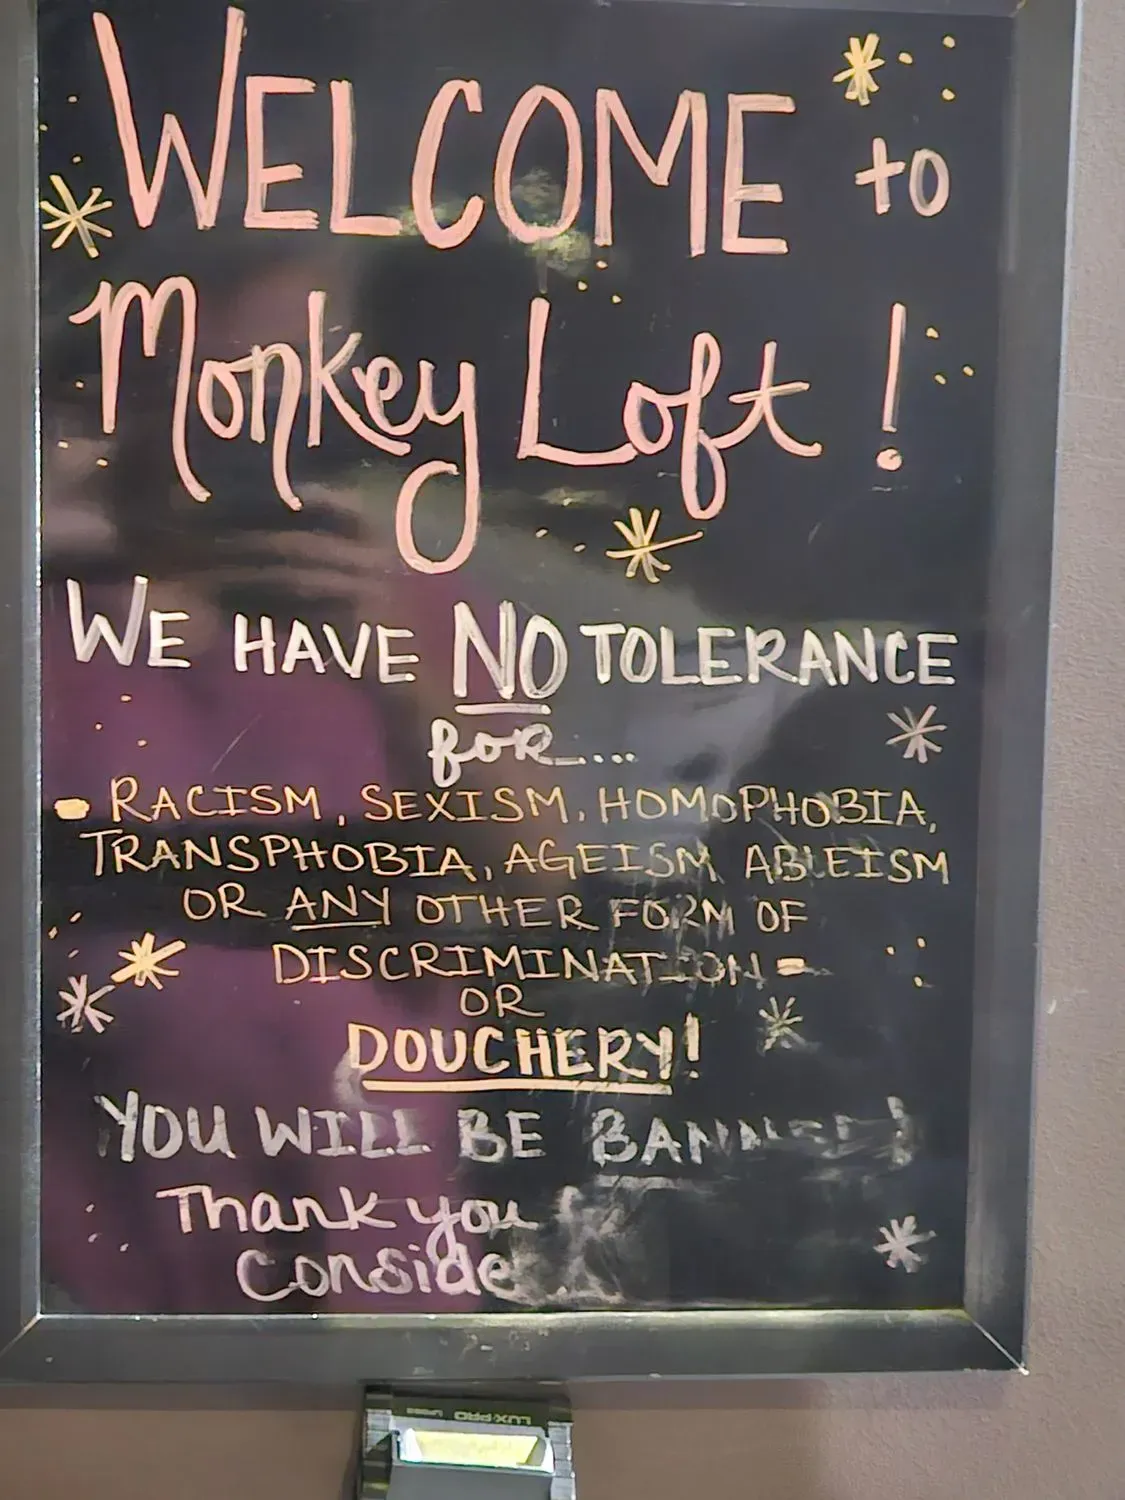 WELCOME to
Monkey Loft!
WE HAVE NO TOLERANCE
for....
- RACISM, SEXISM, HOMOPHOBIA,
TRANSPHOBIA, AGEISM ABLEISM
OR ANY OTHER FORM OF
DISCRIMINATION -
OR
DOUCHERY!
YOU WILL BE BANNED!
Thank you
LUX-PRO